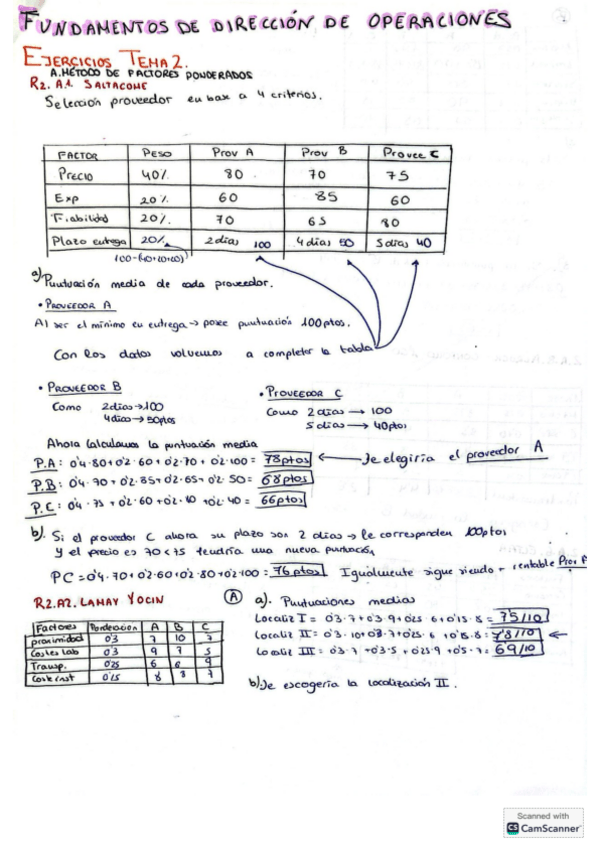 FUNDAMENTOS DE DIRECCIÓN DE OPERACIONES
EJERCICIOS TEMA 2.
A. MÉTODO DE FACTORES PONDERADOS
R2. A1. SALTACOME
Selección proveedor en base a 4 criterios.
FACTOR PESO Prov A Prov B Provee C
Precio 40% 80 70 75
Exp 20% 60 85 60
Fiabilidad 20% 70 65 80
Plazo entrega 20% 2 días 100 4 días 50 5 días 40
100-(40+20+20)
a) Puntuación media de cada proveedor.
• PROVEEDOR A
Al ser el mínimo en entrega → posee puntuación 100ptos.
Con los datos volvemos a completar la tabla
• PROVEEDOR B
Como 2días → 100
4días → 50ptos
• PROVEEDOR C
Como 2 días → 100
5 días → 40ptos
Ahora calculamos la puntuación media
P.A: 0'4·80+0'2·60+0'2·70+0'2·100= 78ptos ← Se elegiría el proveedor A
P.B: 0'4·70+0'2·85+0'2·65+0'2·50= 68ptos
P.C: 0'4·75+0'2·60+0'2· +0'2·40= 66ptos
b). Si el proveedor C ahora su plazo son 2 días → le corresponden 100ptos
y el precio es 70<75 tendría una nueva puntuación
PC=0'4·70+0'2·60+0'2·80+0'2·100= 76ptos Igualmente sigue siendo + rentable Prov
R2. A2. LAMAY YOCIN
Factores Ponderación A B C
proximidad 0'3 7 10 7
Costes lab 0'3 9 7 5
Transp. 0'25 6 6 9
Coste inst 0'15 8 8 7
A a). Puntuaciones medias
Localiz I = 0'3·7+0'3·9+0'25·6+0'15·8= 7'5/10
Localiz II= 0'3·10+0'3·7+0'25·6+0'15·8= 7'8/10 ←
Localiz III= 0'3·7+0'3·5+0'25·9+0'15·7= 6'9/10
b) Se escogería la localización II.
Scanned with
CS CamScanner